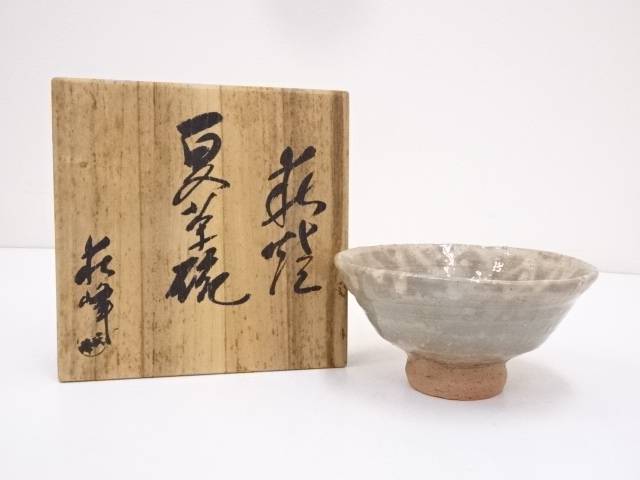 萩焼
夏茶碗
萩峰